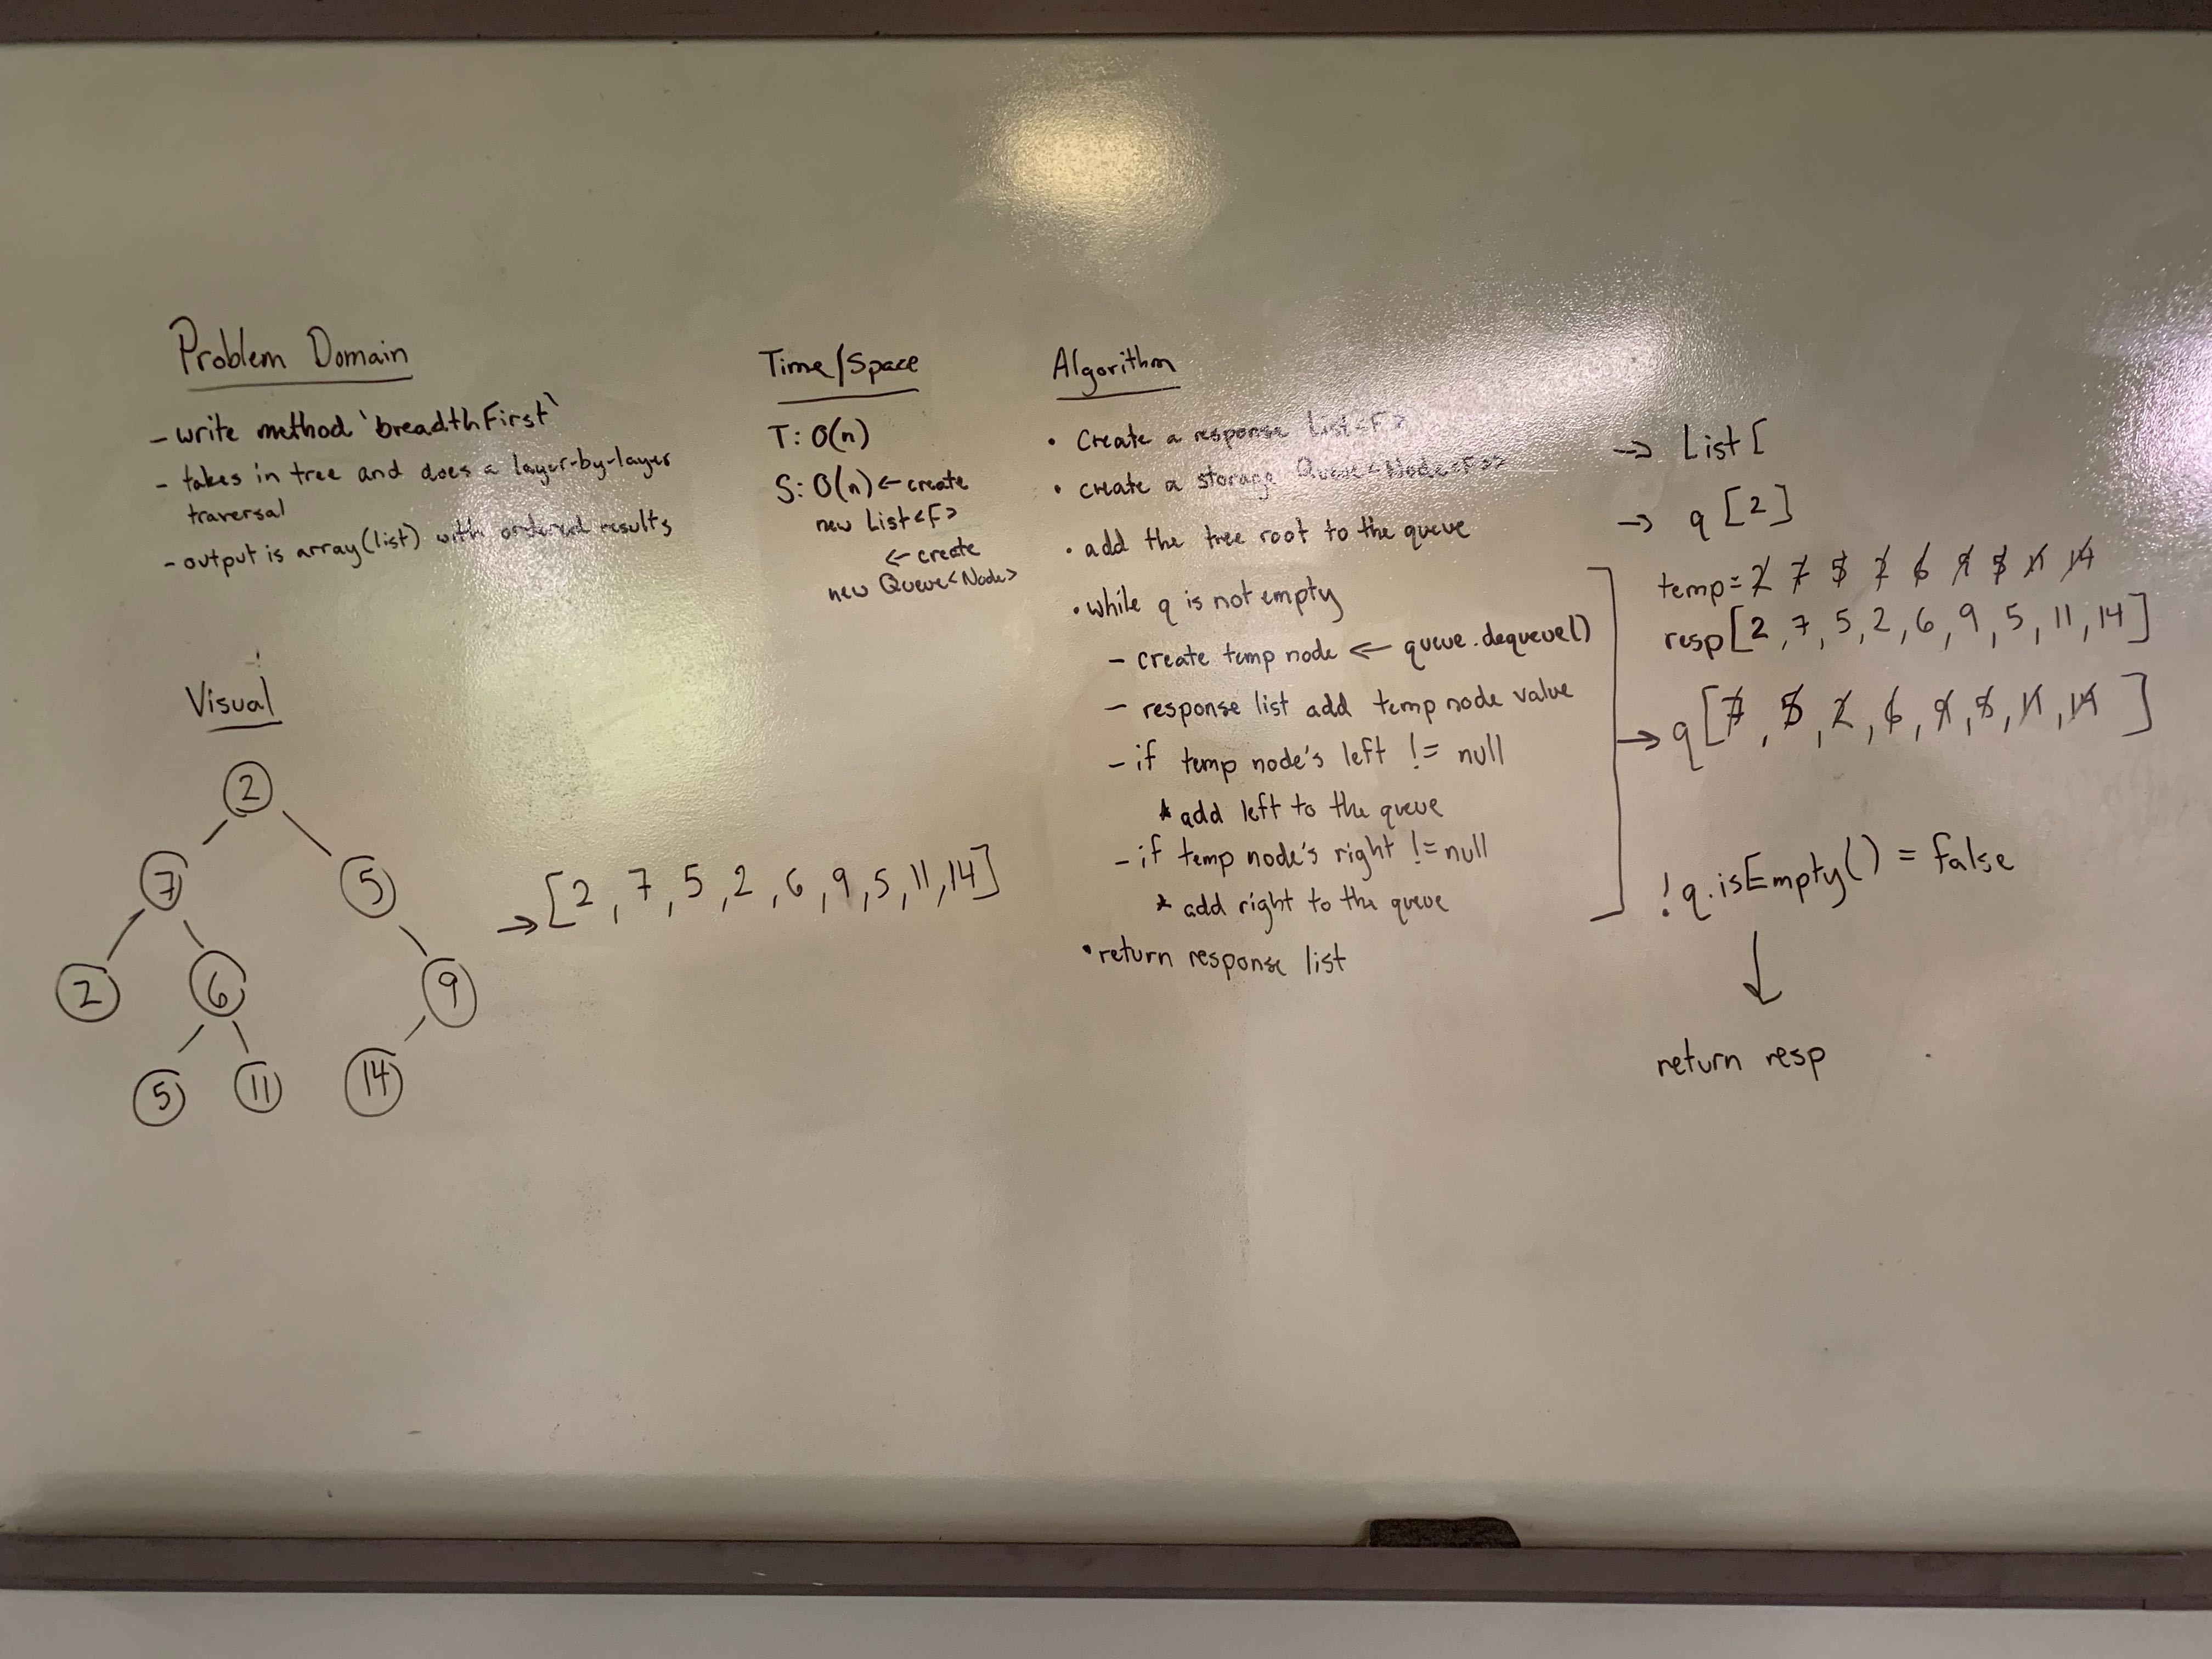 Problem Domain
- write method `breadthFirst`
- takes in tree and does a layer-by-layer
traversal
- output is array(list) with ordered results
Visual
2
7
5
2
6
9
5
11
14
→ [2, 7, 5, 2, 6, 9, 5, 11, 14]
Time/Space
T: O(n)
S: O(n) ← create
new List<F>
← create
new Queue<Node>
Algorithm
• Create a response List<F>
• create a storage Queue<Node<F>>
• add the tree root to the queue
• while q is not empty
- create temp node ← queue.dequeue()
- response list add temp node value
- if temp node's left != null
* add left to the queue
- if temp node's right != null
* add right to the queue
• return response list
→ List [
→ q [2]
temp = 2 7 5 2 6 9 5 11 14
resp [2, 7, 5, 2, 6, 9, 5, 11, 14]
→ q [7, 5, 2, 6, 9, 5, 11, 14 ]
!q.isEmpty() = false
↓
return resp